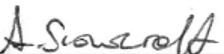 A. Scowcroft